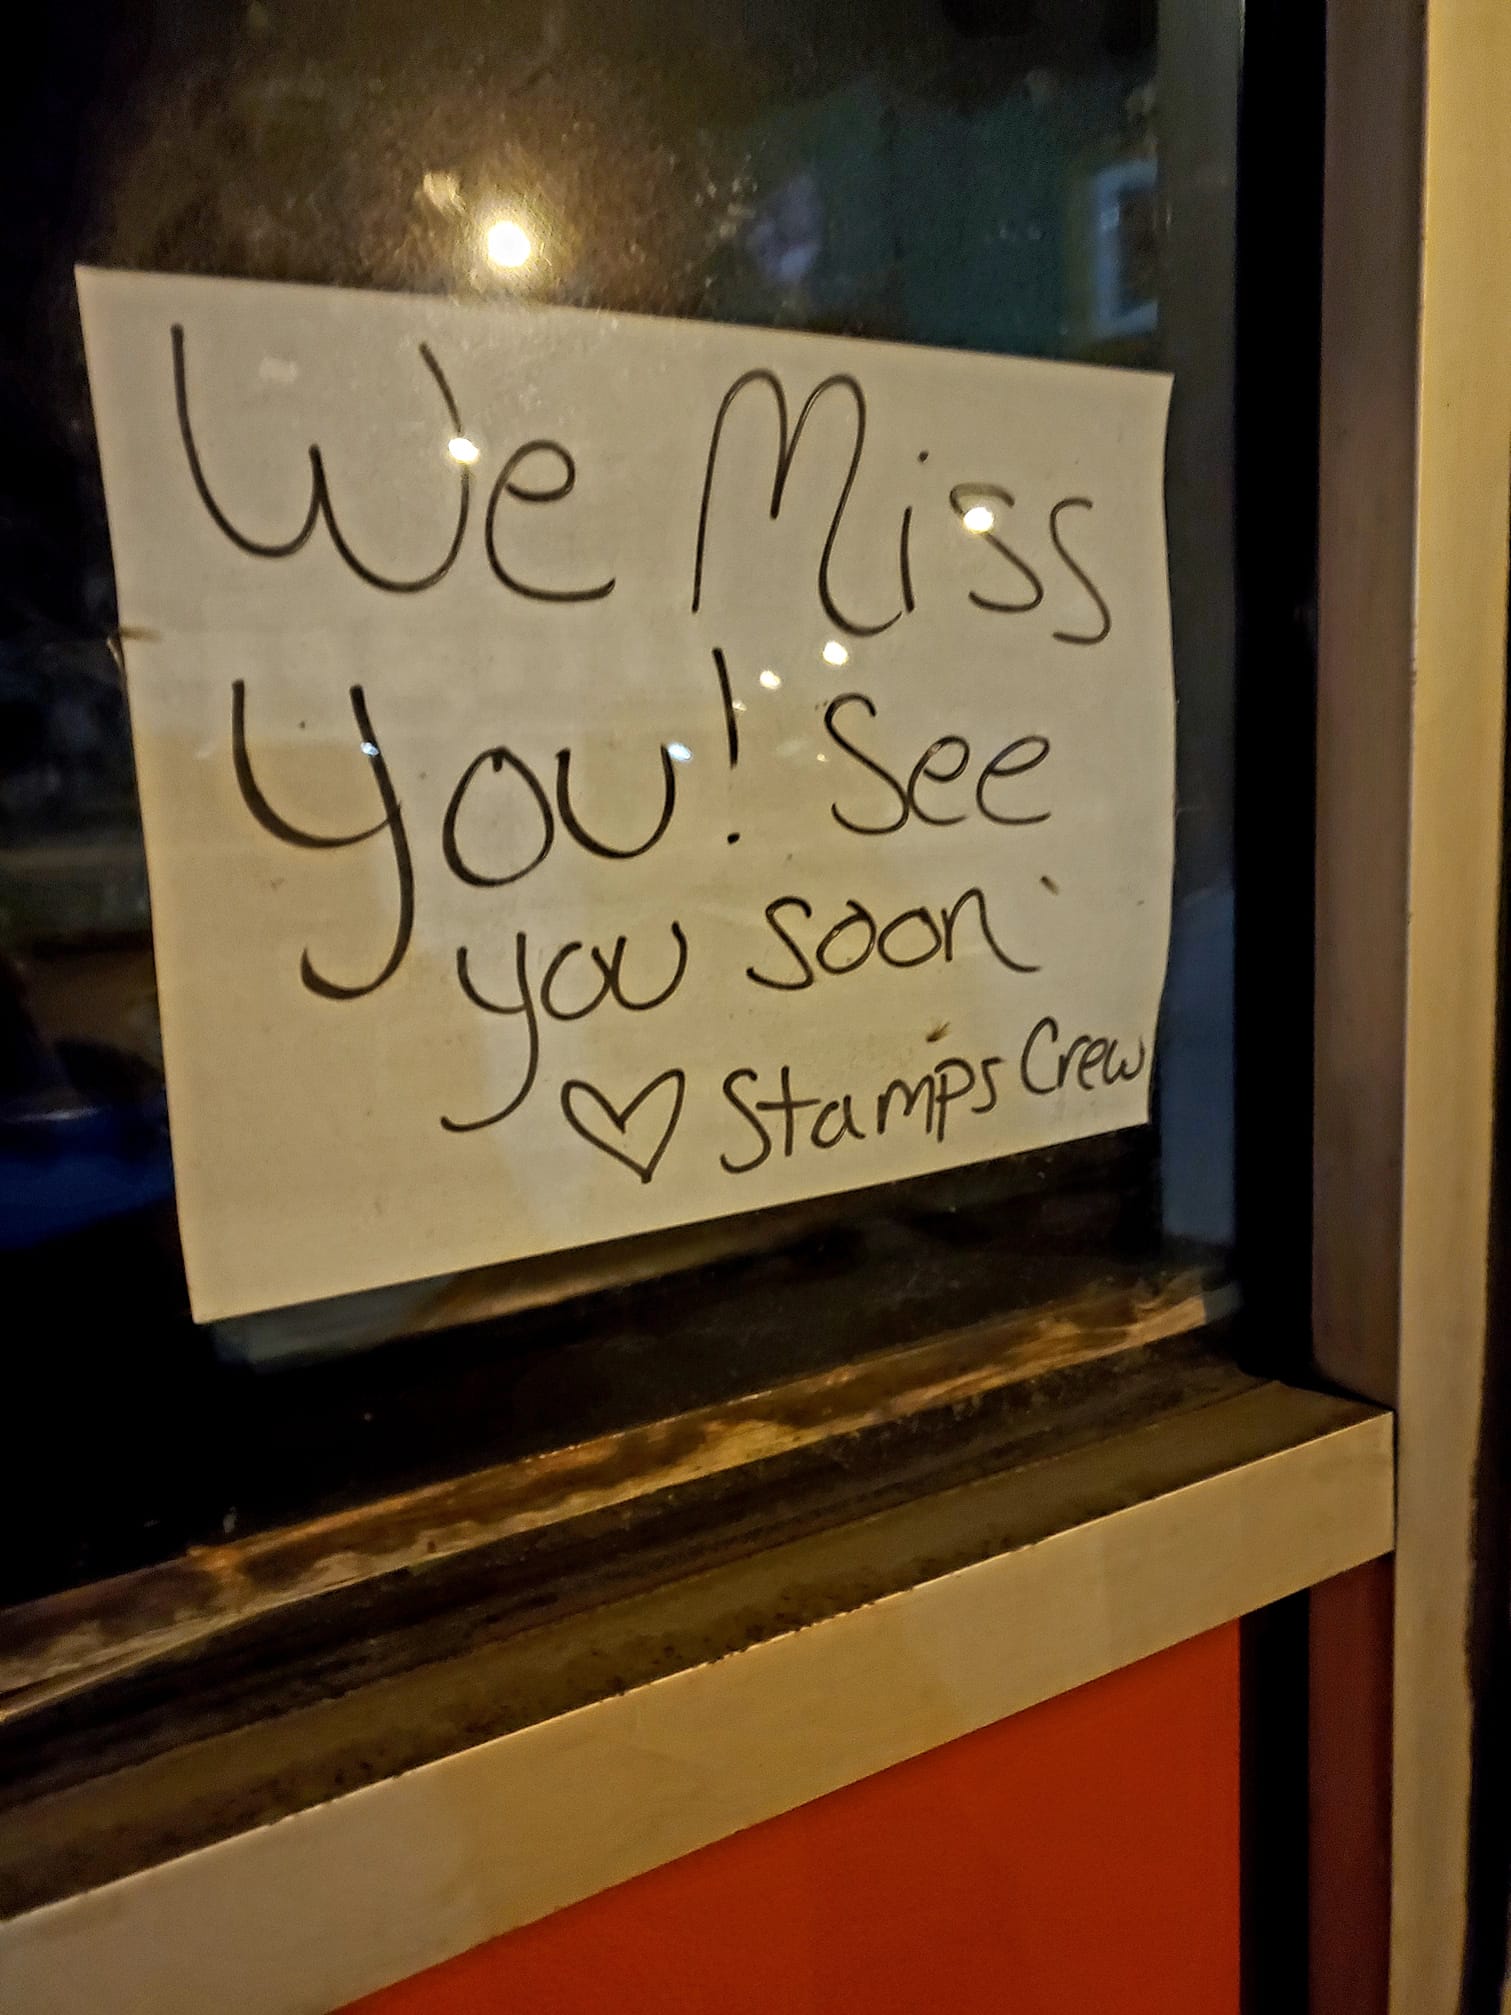 We Miss
You! See
you soon
♡ Stamps Crew